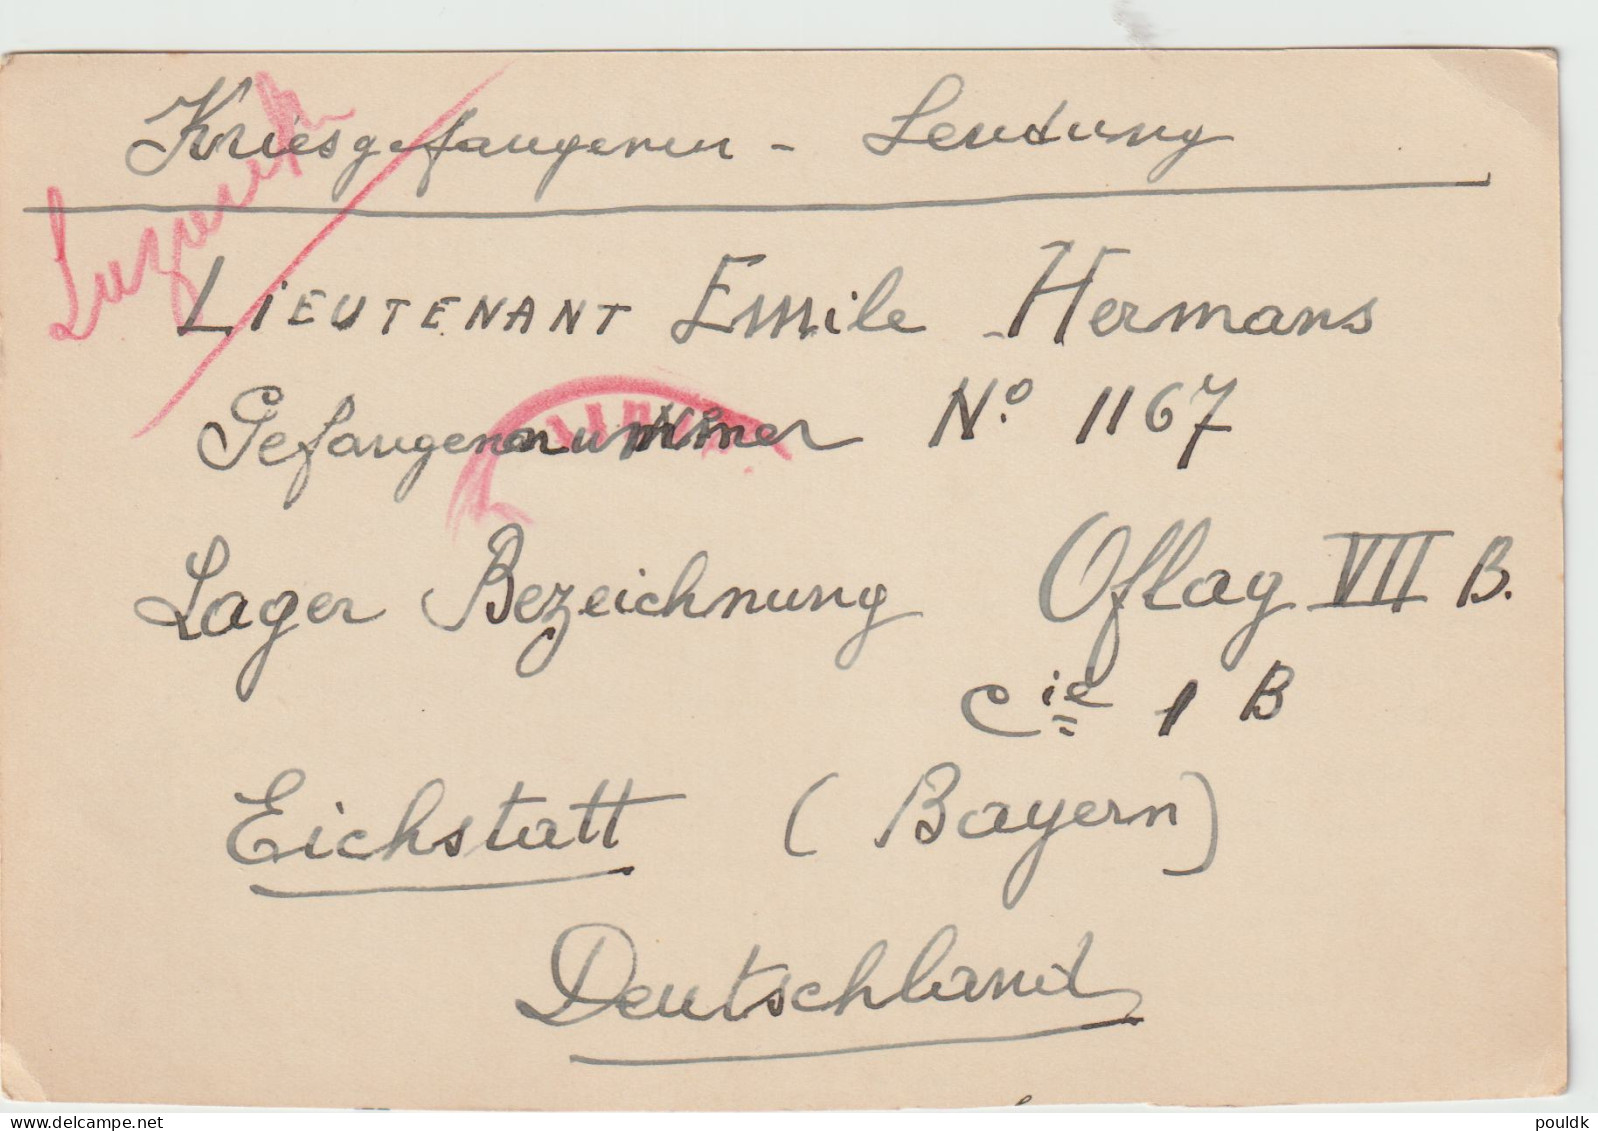 Kriesgefangenen - Sendung
LIEUTENANT Emile Hermans
Gefangenennummer No. 1167
Lager Bezeichnung Oflag VII B.
Cie 1 B
Eichstatt (Bayern)
Deutschland
pouldk